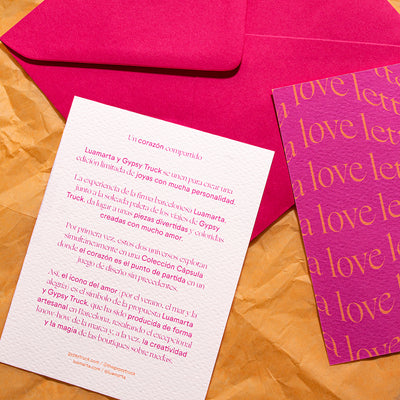 Un corazón compartido
Luamarta y Gypsy Truck se unen para crear una
edición limitada de joyas con mucha personalidad.
La experiencia de la firma barcelonesa Luamarta,
junto a la soleada paleta de los viajes de Gypsy
Truck, da lugar a unas piezas divertidas y coloridas,
creadas con mucho amor.
Por primera vez, estos dos universos exploran
simultáneamente en una Colección Cápsula
donde el corazón es el punto de partida en un
juego de diseño sin precedentes.
Así, el icono del amor, por el verano, el mar y la
alegría, es el símbolo de la propuesta Luamarta
y Gypsy Truck, que ha sido producida de forma
artesanal en Barcelona, resaltando el excepcional
know-how de la marca y, a la vez, la creatividad
y la magia de las boutiques sobre ruedas.
a love lett
a love lett
a love lett
a love lett
a love lett
a love
a love
a love